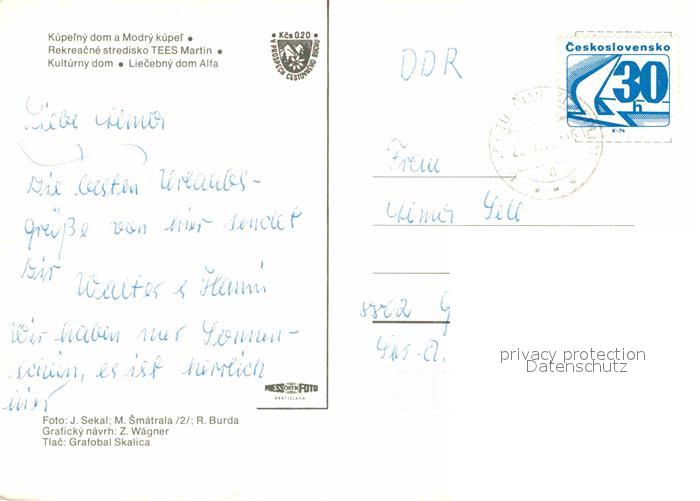 Kúpeľný dom a Modrý kúpeľ •
Rekreačné stredisko TEES Martin •
Kultúrny dom • Liečebný dom Alfa
Kčs 0.20
V PROSPECH CESTOVNÉHO RUCHU
Liebe
Die besten Urlaubs-
grüße von hier sendet
Dir Walter & Hanni
Wir haben nur Sonnen-
schein, es ist herrlich
hier
PRESSFOTO
BRATISLAVA
Foto: J. Sekal; M. Šmátrala /2/; R. Burda
Grafický návrh: Z. Wágner
Tlač: Grafobal Skalica
DDR
Československo
30
h
K-74
Frau
Sell
G
privacy protection
Datenschutz